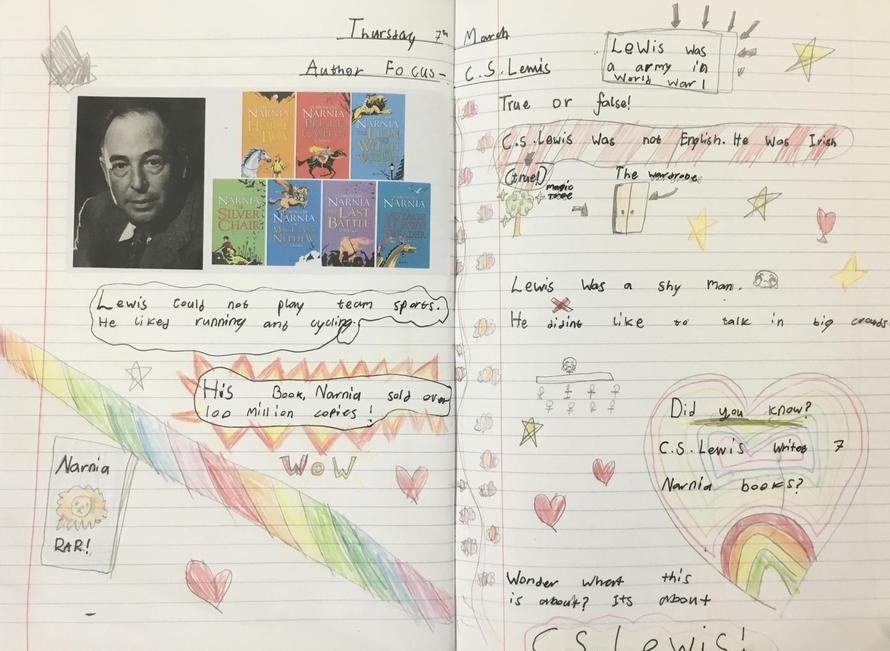 Thursday 7th March
Author Focus - C.S. Lewis
NARNIA
NARNIA
PRINCE CASPIAN
NARNIA
NARNIA
SILVER CHAIR
NARNIA
NARNIA
LAST BATTLE
NARNIA
Lewis could not play team sports.
He liked running and cycling.
His Book, Narnia sold over
100 Million copies!
WOW
Narnia
RAR!
Lewis was
a army in
World War 1
True or false!
C.S. Lewis was not English. He was Irish
(true!)
magic
tree
The wardrobe
Lewis was a shy man.
He didint like to talk in big crowds
Did you know?
C.S. Lewis writes 7
Narnia books?
Wonder what this
is about? Its about
C.S. Lewis!